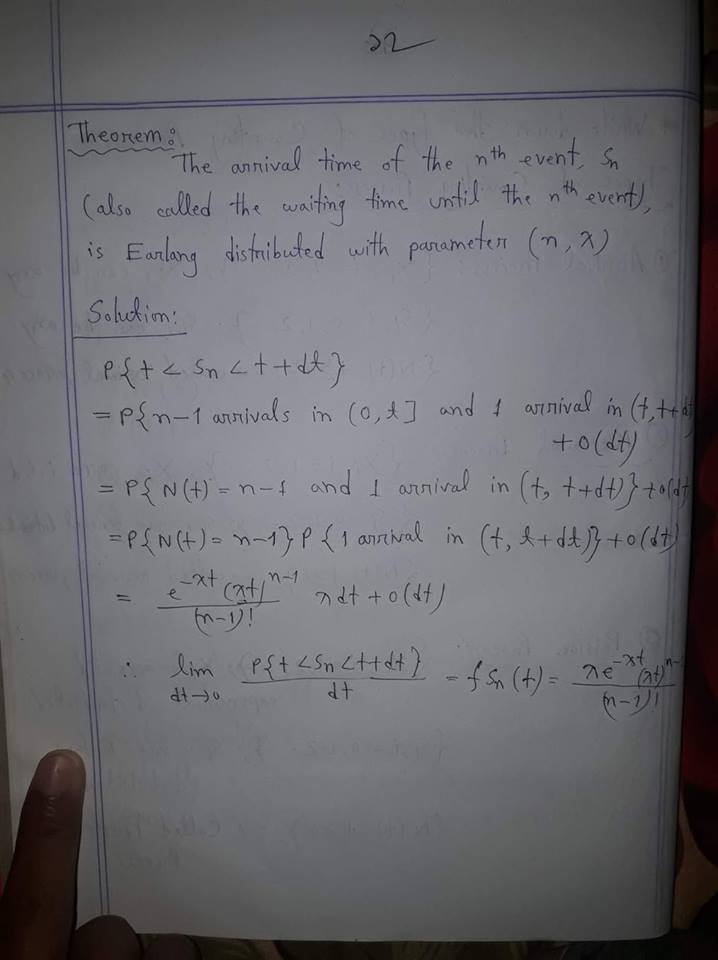 22
Theorem:
The arrival time of the nth event, Sn
(also called the waiting time until the nth event),
is Earlang distributed with parameter (n, λ)
Solution:
P{t < Sn < t+dt}
= P{n-1 arrivals in (0, t] and 1 arrival in (t, t+dt)
+ o(dt)
= P{N(t) = n-1 and 1 arrival in (t, t+dt)} + o(dt
= P{N(t) = n-1} P{1 arrival in (t, t+dt)} + o(dt)
= e^{-λt} (λt)^{n-1} / (n-1)! λdt + o(dt)
∴ lim dt→0 P{t < Sn < t+dt} / dt = f Sn(t) = λe^{-λt} (λt)^{n- / (n-1)!